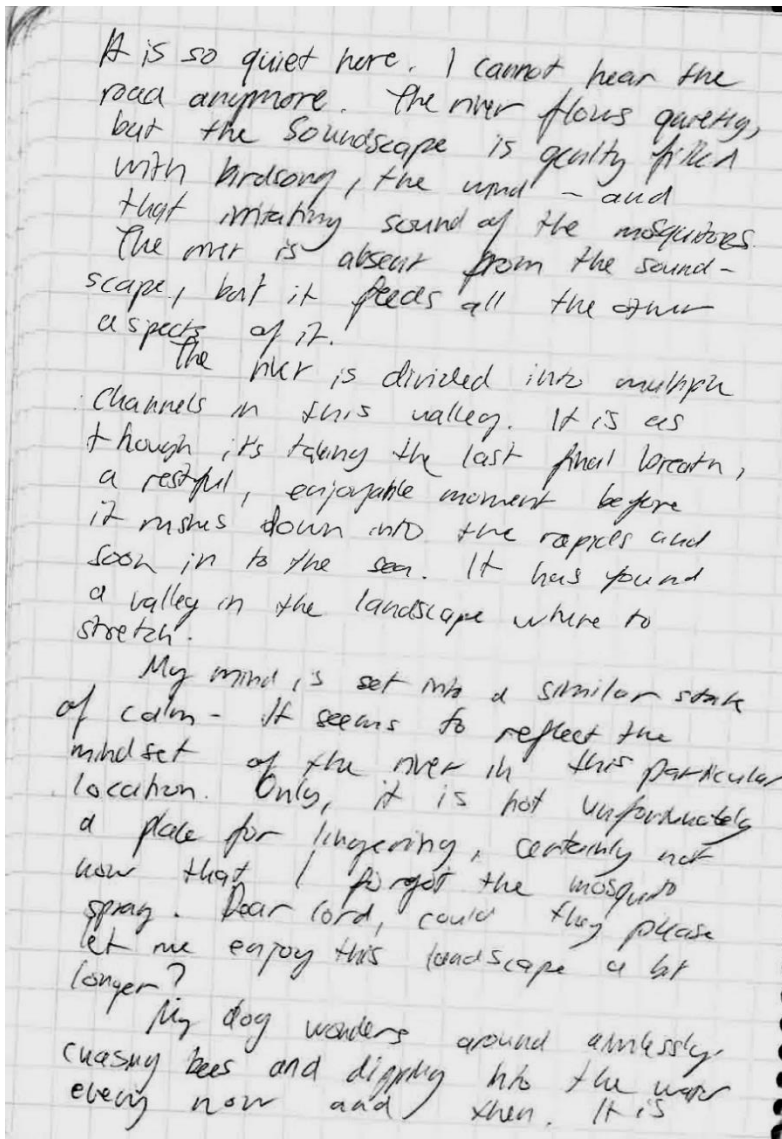 It is so quiet here. I cannot hear the
road anymore. The river flows quietly,
but the soundscape is gently filled
with birdsong, the wind - and
that irritating sound of the mosquitoes.
The river is absent from the sound-
scape, but it feeds all the other
aspects of it.
The river is divided into multiple
channels in this valley. It is as
though it's taking the last final breath,
a restful, enjoyable moment before
it rushes down into the rapids and
soon in to the sea. It has found
a valley in the landscape where to
stretch.
My mind is set into a similar state
of calm - It seems to reflect the
mindset of the river in this particular
location. Only, it is not unfortunately
a place for lingering, certainly not
now that I forgot the mosquito
spray. Dear lord, could they please
let me enjoy this landscape a bit
longer?
My dog wonders around aimlessly,
chasing bees and dipping into the water
every now and then. It is